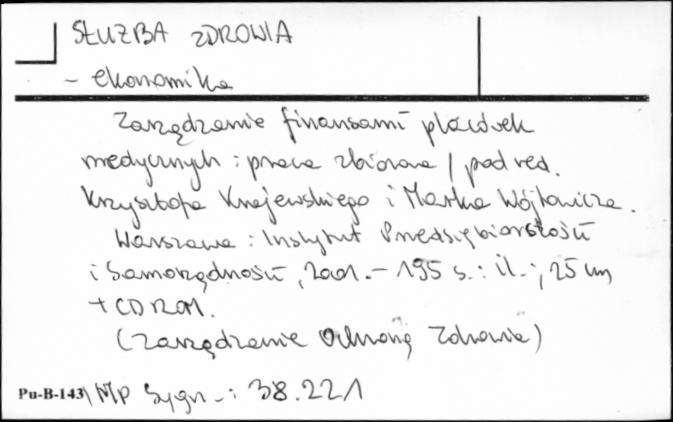 SŁUŻBA ZDROWIA
- ekonomika
Zarządzanie finansami placówek
medycznych : praca zbiorowa / pod red.
Krzysztofa Krajewskiego i Marka Wójtowicza.
Warszawa : Instytut Przedsiębiorczości
i Samorządności, 2001. - 195 s. : il. ; 25 cm
+ CD ROM.
(Zarządzanie Ochroną Zdrowia)
Pu-B-143/MP Sygn. : 38.221